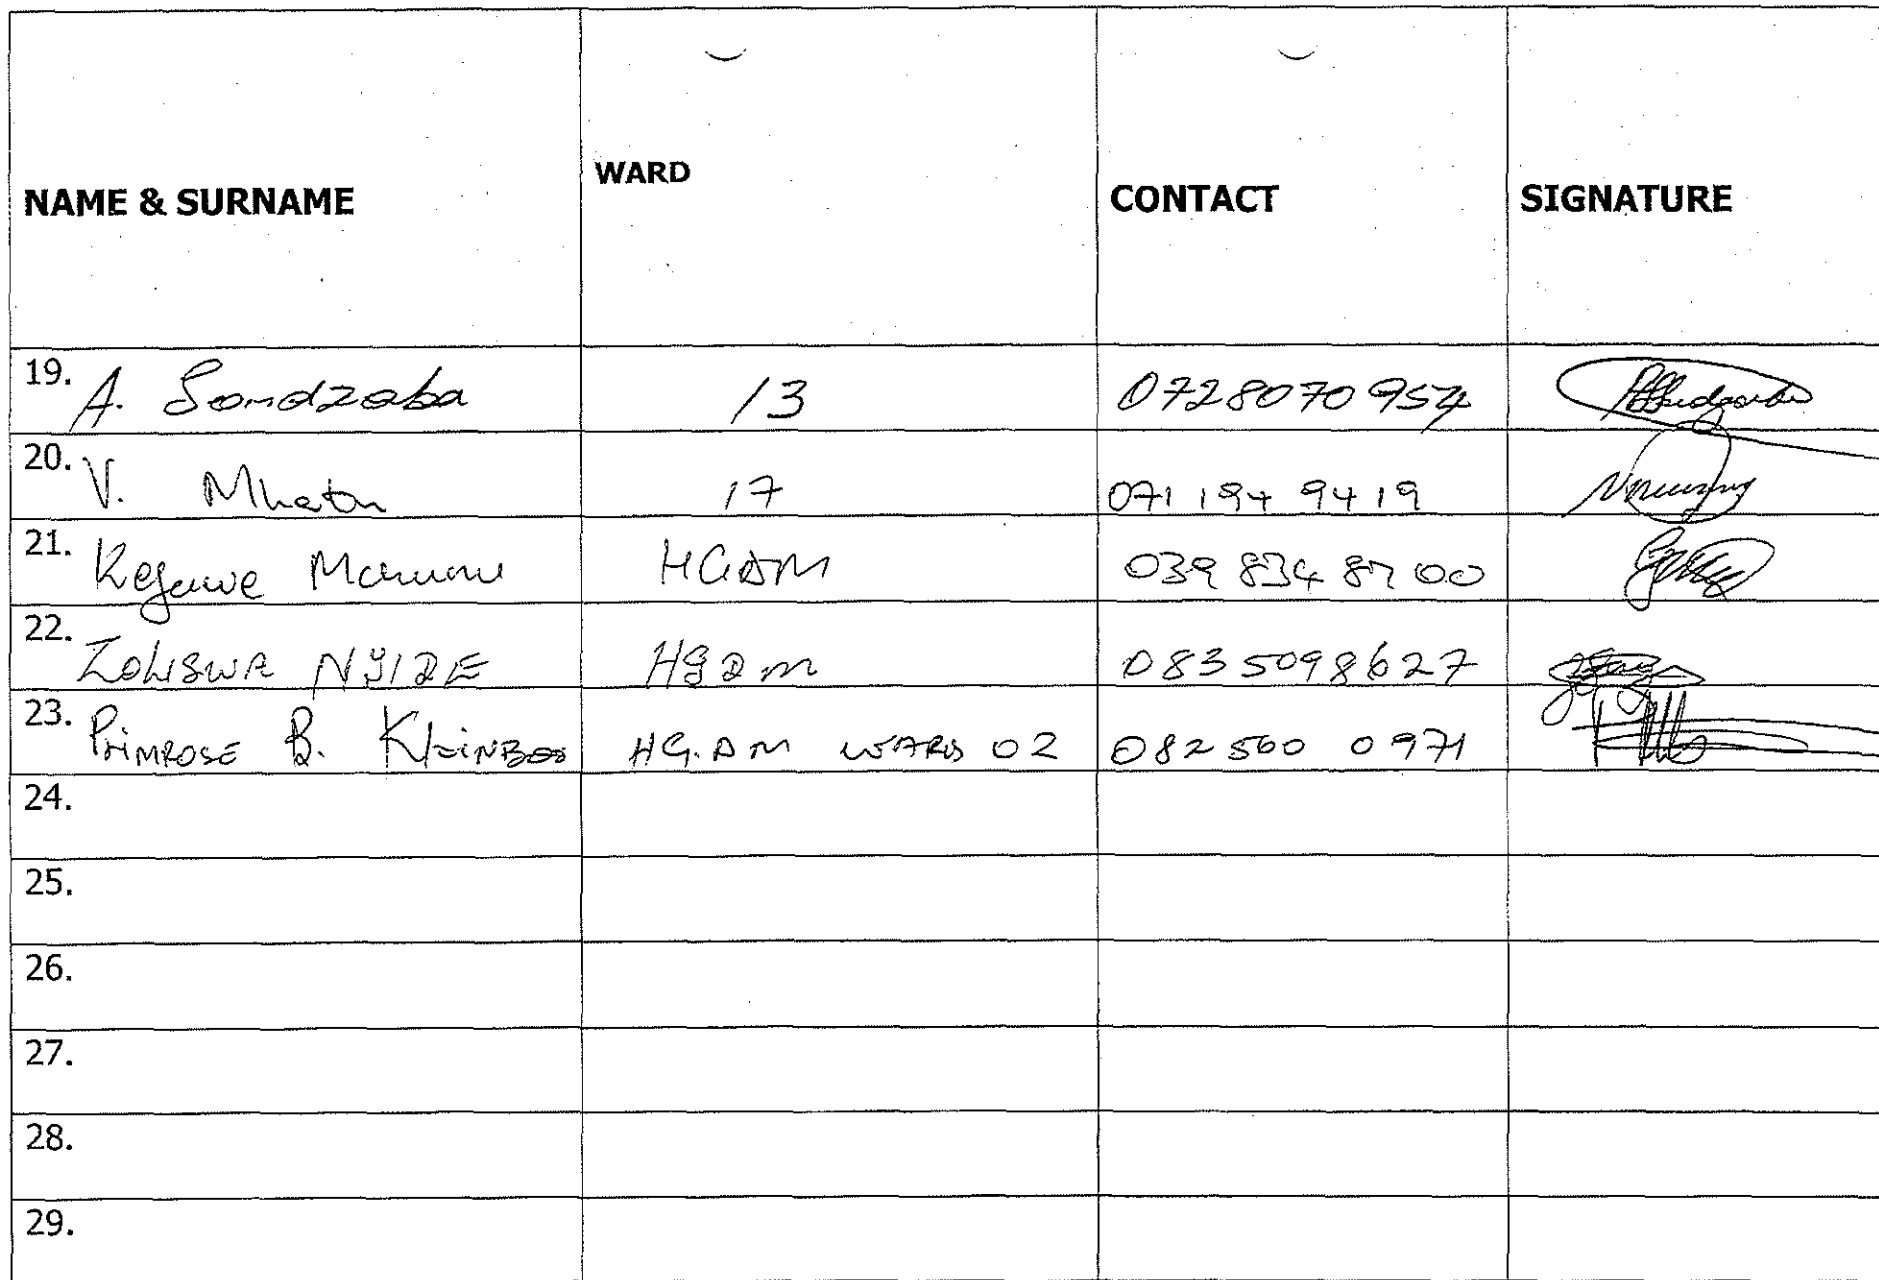 NAME & SURNAME WARD CONTACT SIGNATURE
19. A. Sondzaba 13 0728070954
20. V. 17 071 194 9419
21. HGDM 039 834 8700
22. ZOLISWA HGDM 0835098627
23. PRIMROSE B. KLEINBOO HG.DM WARD 02 082 560 0971
24.
25.
26.
27.
28.
29.